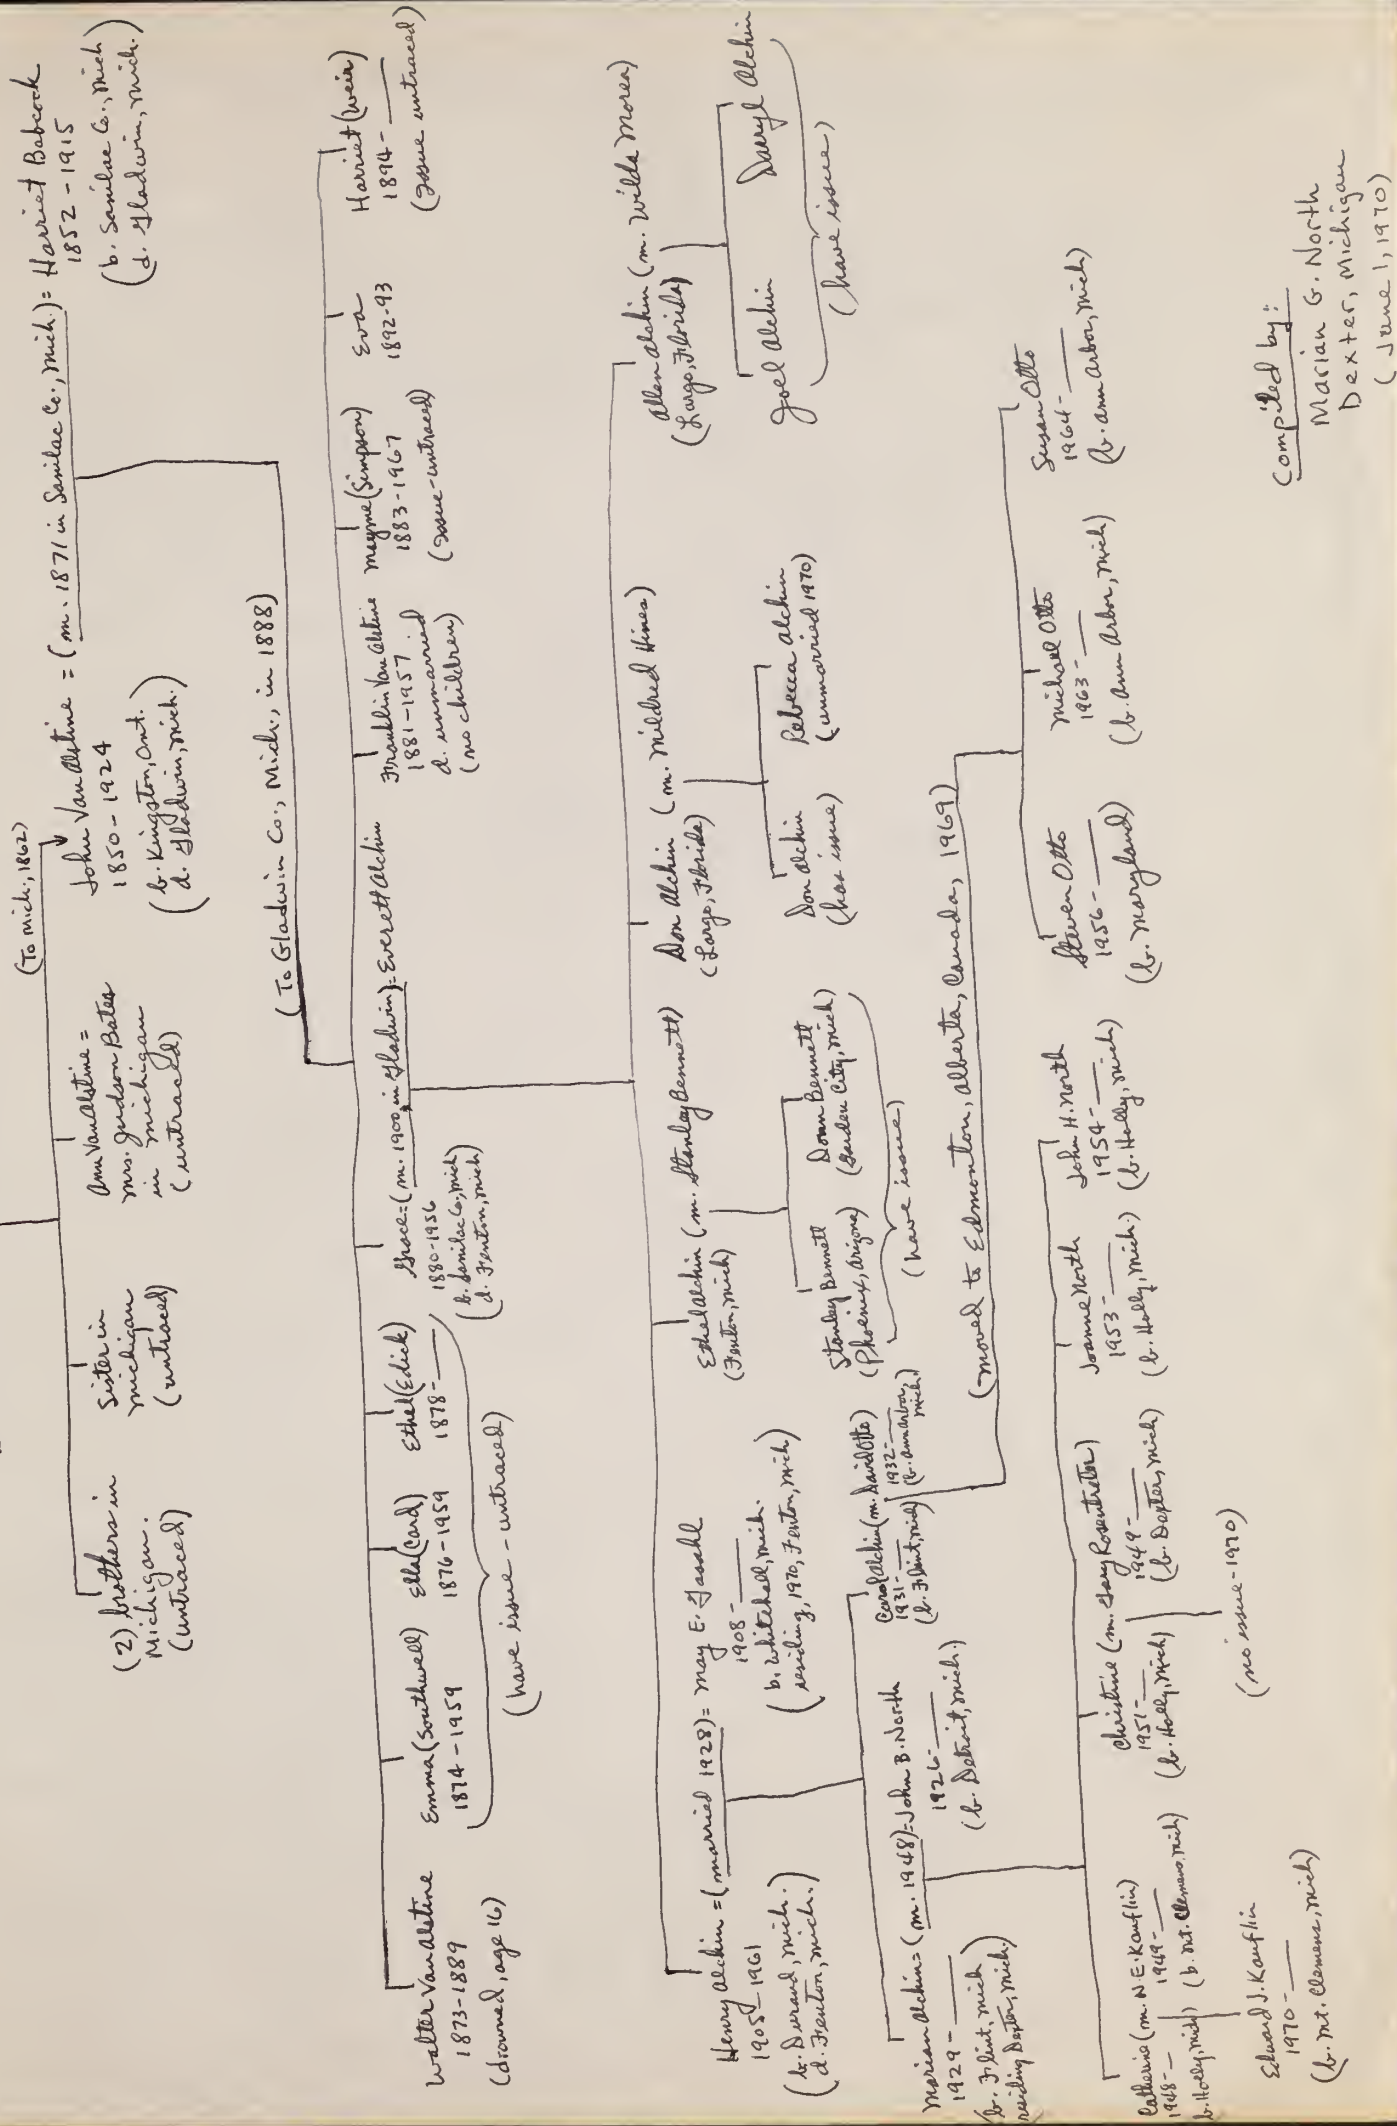 (To Mich., 1862)
(2) brothers in
Michigan.
(untraced)
Sister in
Michigan
(untraced)
Ann Van Alstine =
Mrs. Judson Bates
in Michigan
(untraced)
John Van Alstine = (m. 1871 in Sanilac Co., Mich.) = Harriet Babcock
1850 - 1924
(b. Kingston, Ont.
d. Gladwin, Mich.)
1852 - 1915
(b. Sanilac Co., Mich
d. Gladwin, Mich.)
(To Gladwin Co., Mich., in 1888)
Walter Van Alstine
1873-1889
(drowned, age 16)
Emma (Southwell)
1874 - 1959
Ella (Card)
1876 - 1959
Ethel (Edick)
1878-
(have issue - untraced)
Grace = (m. 1900, in Gladwin) = Everett Alchin
1880-1956
(b. Sanilac Co, Mich
d. Fenton, Mich)
Franklin Van Alstine
1881-1957
d. unmarried
(no children)
Mayme (Simpson)
1883-1967
(issue-untraced)
Eva
1892-93
Harriet (Weir)
1894-
(issue untraced)
Henry Alchin = (married 1928) = May E. Gassahl
1905-1961
(b. Durand, Mich.
d. Fenton, Mich.)
1908-
(b. Whitehall, Mich.
residing, 1970, Fenton, Mich)
Ethel Alchin (m. Stanley Bennett)
(Fenton, Mich)
Don Alchin (m. Mildred Hines)
(Largo, Florida)
Allen Alchin (m. Wilda Morea)
(Largo, Florida)
Stanley Bennett
(Phoenix, Arizona)
Donn Bennett
(Garden City, Mich)
(have issue)
Don Alchin
(has issue)
Rebecca Alchin
(unmarried 1970)
Joel Alchin
Darryl Alchin
(have issue)
Marian Alchin = (m. 1948) = John B. North
1929-
(b. Flint, Mich
residing Dexter, Mich.)
1926-
(b. Detroit, Mich.)
Carol Alchin (m. David Otto)
1931-
(b. Flint, Mich)
1932-
(b. Ann Arbor, Mich.)
(-moved to Edmonton, Alberta, Canada, 1969)
Catherine (m. N.E. Kauflin)
1948-
b. Holly, Mich)
1949-
(b. Mt. Clemens, Mich)
Christine (m. Gary Rosentreter)
1951-
(b. Holly, Mich)
1949-
(b. Dexter, Mich)
Joanne North
1953-
(b. Holly, Mich.)
John H. North
1954-
(b. Holly, Mich)
Steven Otto
1956-
(b. Maryland)
Michael Otto
1963-
(b. Ann Arbor, Mich)
Susan Otto
1964-
(b. Ann Arbor, Mich)
Edward J. Kauflin
1970-
(b. Mt. Clemens, Mich)
(no issue-1970)
Compiled by:
Marian G. North
Dexter, Michigan
(June 1, 1970)